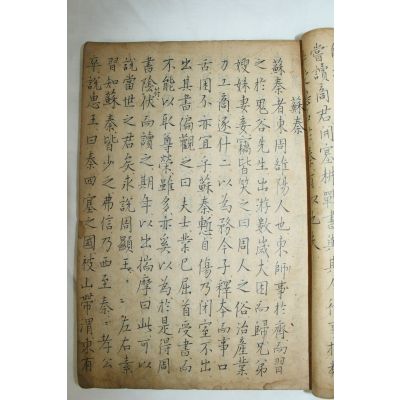 嘗讀商君開塞耕戰書與其人行事相
蘇秦
蘇秦者東周雒陽人也東師事於齊而習
之於鬼谷先生出游數歲大困而歸兄弟
嫂妹妻妾竊皆笑之曰周人之俗治產業
力工商逐什二以為務今子釋本而事口
舌困不亦宜乎蘇秦慙自傷乃閉室不出
出其書偏觀之曰夫士業已屈首受書而
不能以取尊榮雖多亦奚以為於是得周
書陰符伏而讀之期年以出揣摩曰此可以
說當世之君矣求說周顯王〻〻左右素
習知蘇秦皆少之弗信乃西至秦〻孝公
卒說惠王曰秦四塞之國被山帶渭東有